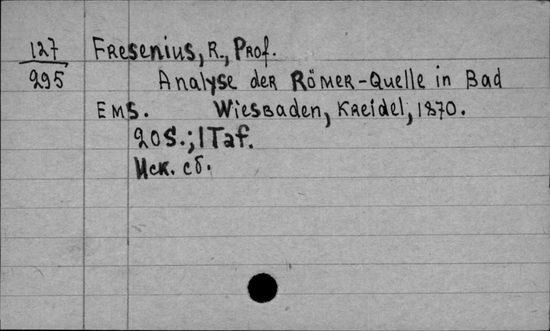 127
295
Fresenius, R., Prof.
Analyse der Römer-Quelle in Bad
Ems. Wiesbaden, Kreidel, 1870.
20S.; 1Taf.
Иск. сб.